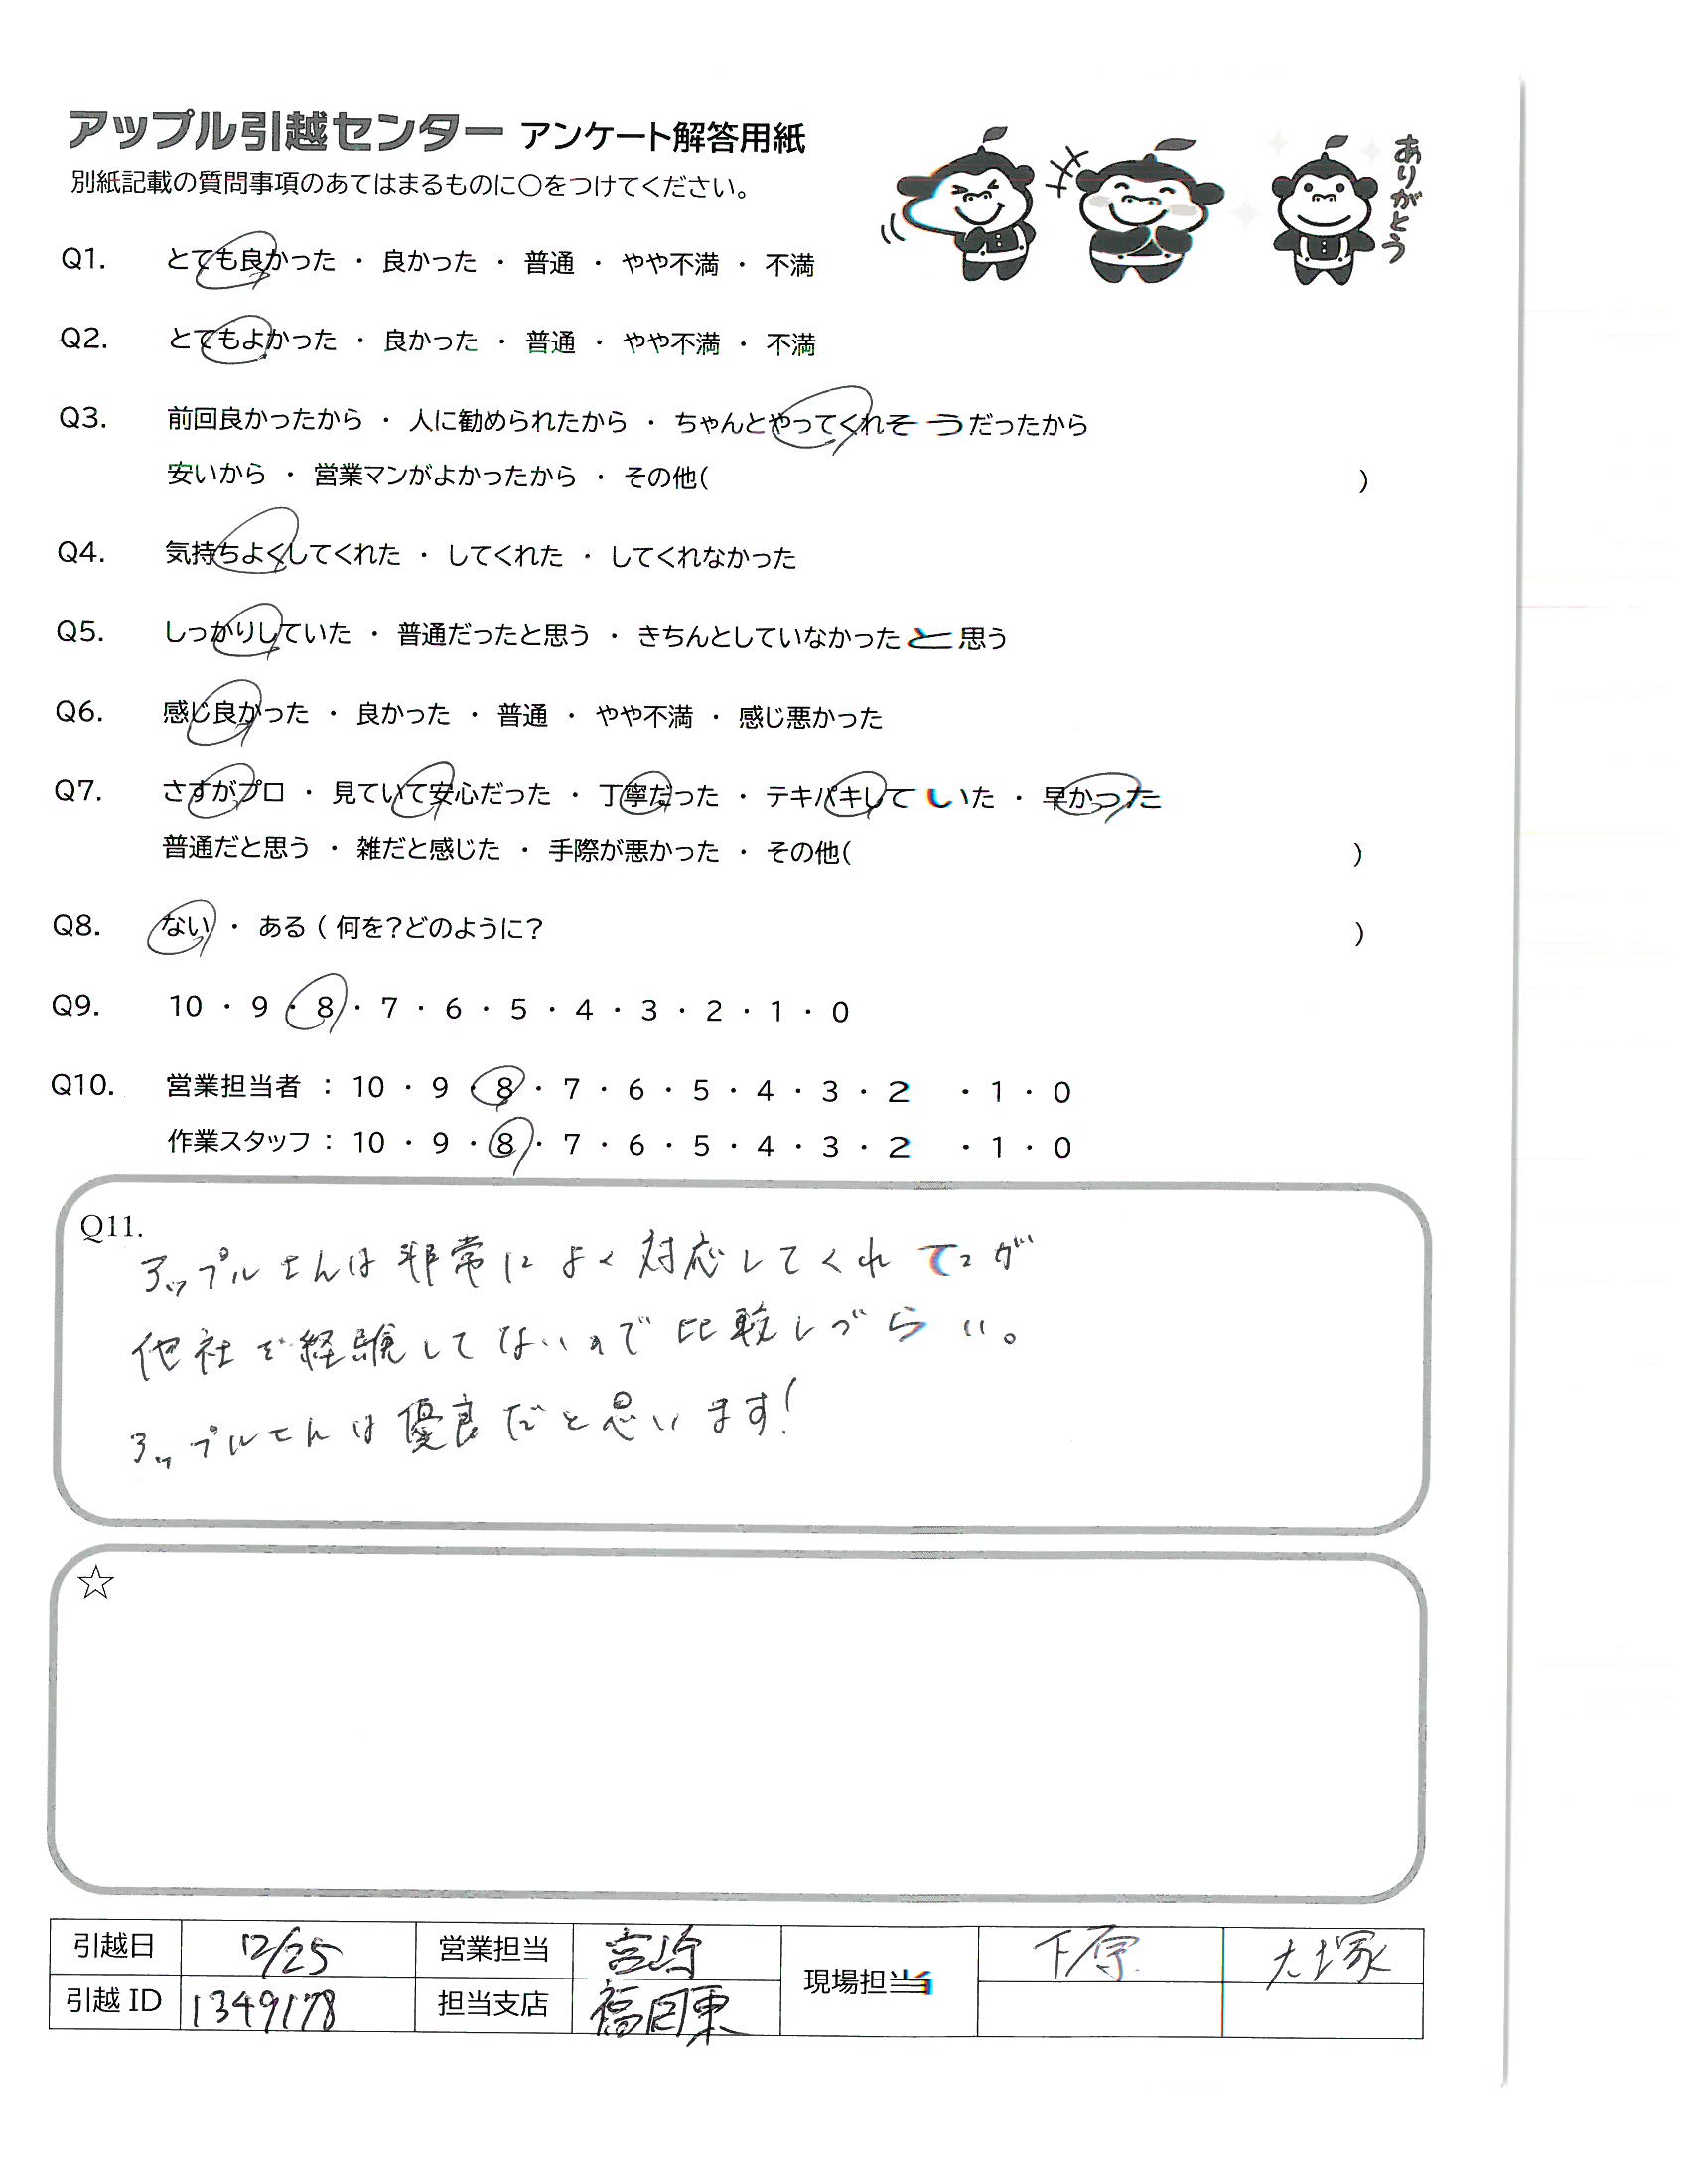 アップル引越センター アンケート解答用紙
別紙記載の質問事項のあてはまるものに○をつけてください。
ありがとう
Q1. とても良かった ・ 良かった ・ 普通 ・ やや不満 ・ 不満
Q2. とてもよかった ・ 良かった ・ 普通 ・ やや不満 ・ 不満
Q3. 前回良かったから ・ 人に勧められたから ・ ちゃんとやってくれそうだったから
安いから ・ 営業マンがよかったから ・ その他( )
Q4. 気持ちよくしてくれた ・ してくれた ・ してくれなかった
Q5. しっかりしていた ・ 普通だったと思う ・ きちんとしていなかったと思う
Q6. 感じ良かった ・ 良かった ・ 普通 ・ やや不満 ・ 感じ悪かった
Q7. さすがプロ ・ 見ていて安心だった ・ 丁寧だった ・ テキパキしていた ・ 早かった
普通だと思う ・ 雑だと感じた ・ 手際が悪かった ・ その他( )
Q8. ない ・ ある ( 何を?どのように? )
Q9. 10 ・ 9 ・ 8 ・ 7 ・ 6 ・ 5 ・ 4 ・ 3 ・ 2 ・ 1 ・ 0
Q10. 営業担当者 : 10 ・ 9 ・ 8 ・ 7 ・ 6 ・ 5 ・ 4 ・ 3 ・ 2 ・ 1 ・ 0
作業スタッフ : 10 ・ 9 ・ 8 ・ 7 ・ 6 ・ 5 ・ 4 ・ 3 ・ 2 ・ 1 ・ 0
Q11.
アップルさんは非常によく対応してくれ が
他社を経験してないので比較しづらい。
アップルさんは優良だと思います!
☆
引越日 12/25 営業担当 宮崎 現場担当 下原 大塚
引越 ID 1349178 担当支店 福岡東